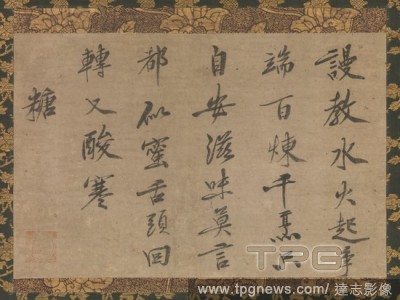 謾教水火起爭
端百煉千熬只
自安滋味莫言
都似蜜舌頭回
轉又酸寒
糖
TPG
www.tpgnews.com 達志影像